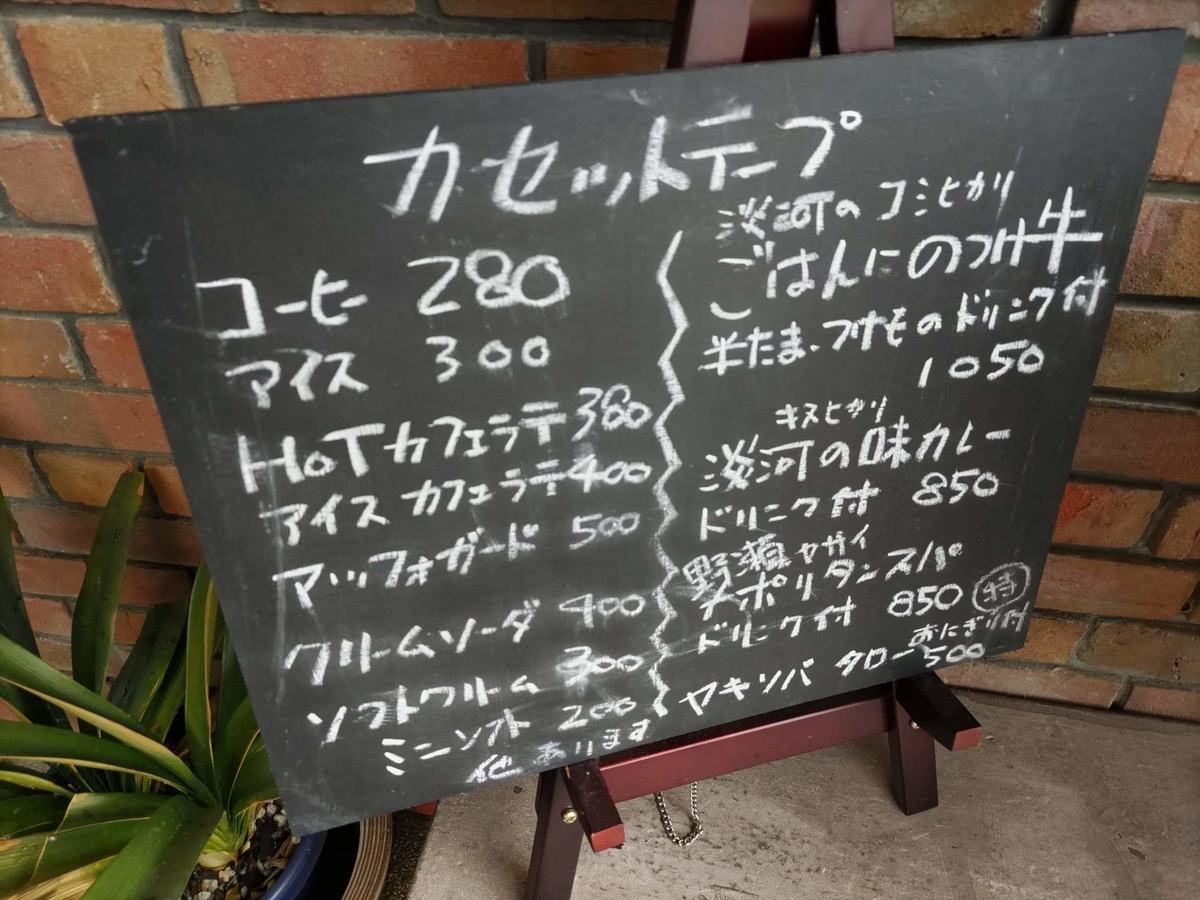 カセットテープ
コーヒー 280
アイス 300
HOTカフェラテ 380
アイスカフェラテ 400
アッフォガード 500
クリームソーダ 400
ソフトクリーム 300
ミニソフト 200
他あります
淡河のコシヒカリ
ごはんにのっけ牛
半たま、つけもの ドリンク付
1050
キヌヒカリ
淡河の味カレー
ドリンク付 850
野瀬ヤサイ
ナポリタンスパ
ドリンク付 850 特
おにぎり付
ヤキソバ タロー 500